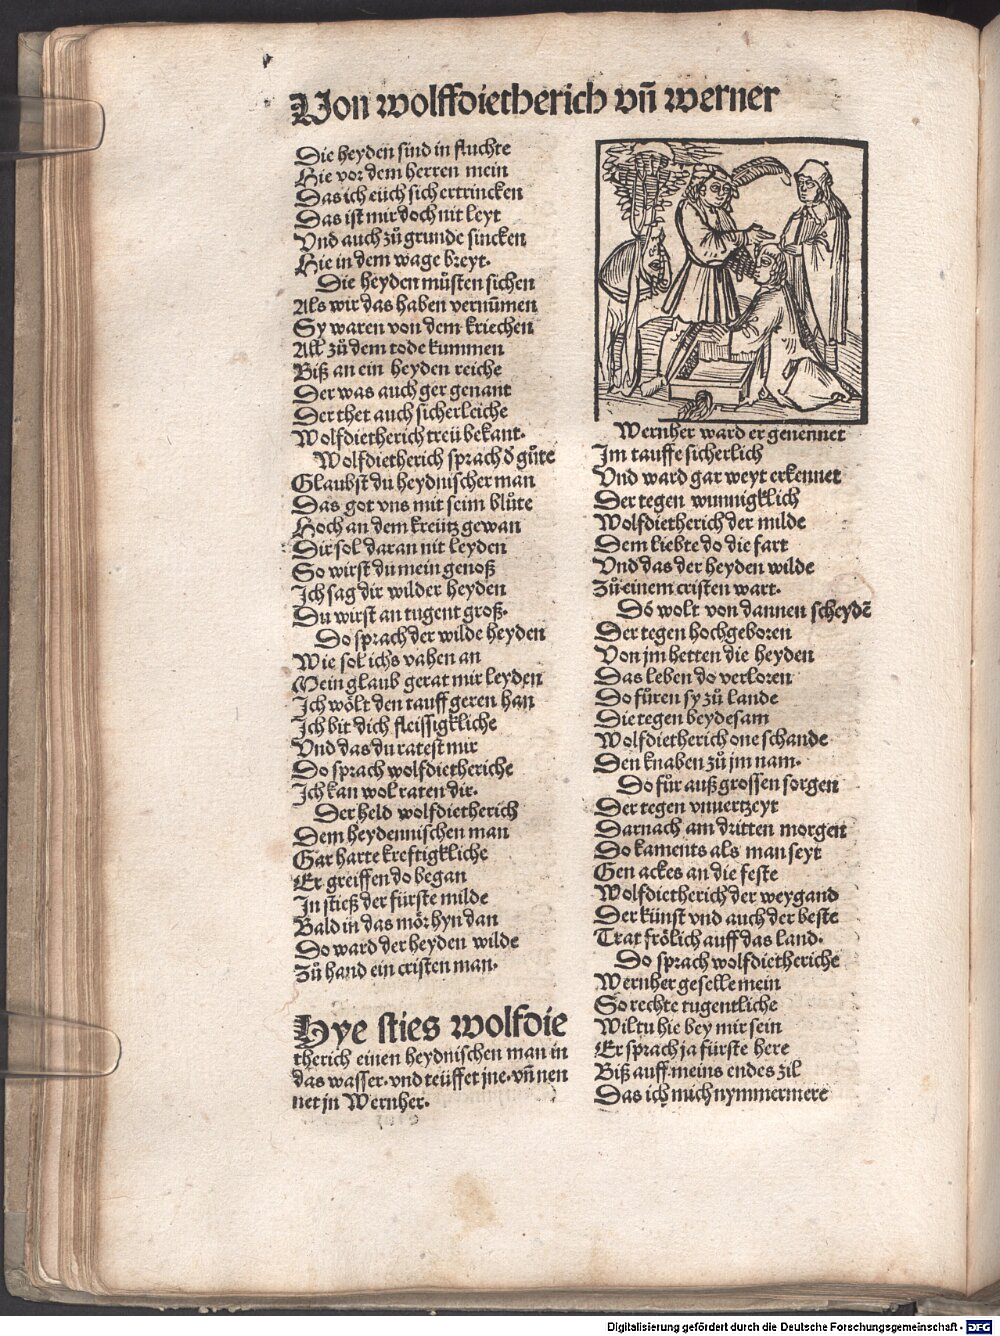 Von wolffdietherich vn̄ werner
Die heyden sind in fluchte
Hie vor dem herren mein
Das ich eüch sich ertrincken
Das ist mir doch nit leyt
Vnd auch zů grunde sincken
Hie in dem wage breyt.
Die heyden můsten sichen
Als wir das haben vernūmen
Sy waren von dem kriechen
All zů dem tode kummen
Biß an ein heyden reiche
Der was auch ger genant
Der thet auch sicherleiche
Wolfdietherich treü bekant.
Wolfdietherich sprach d̄ gůte
Glaubst du heydnischer man
Das got vns mit seim blůte
Hoch an dem kreütz gewan
Dir sol daran nit leyden
So wirst du mein genoß
Ich sag dir wilder heyden
Du wirst an tugent groß.
Do sprach der wilde heyden
Wie sol ichs vahen an
Mein glaub gerat mir leyden
Ich wölt den tauff geren han
Ich bit dich fleissigkliche
Vnd das du ratest mir
Do sprach wolfdietheriche
Ich kan wol raten dir.
Der held wolfdietherich
Dem heydennischen man
Gar harte kreftigkliche
Er greiffen do began
In stieß der fürste milde
Bald in das mör hyn dan
Do ward der heyden wilde
Zů hand ein cristen man.
Hye sties wolfdie
therich einen heydnischen man in
das wasser. vnd teüffet jne. vn̄ nen
net jn Wernher.
Wernher ward er genennet
Im tauffe sicherlich
Vnd ward gar weyt erkennet
Der tegen wunnigklich
Wolfdietherich der milde
Dem liebte do die fart
Vnd das der heyden wilde
Zů einem cristen wart.
Dō wolt von dannen scheydē
Der tegen hochgeboren
Von jm hetten die heyden
Das leben do verloren
Do fůren sy zů lande
Die tegen beydesam
Wolfdietherich one schande
Den knaben zů jm nam.
Do fůr auß grossen sorgen
Der tegen vnuertzeyt
Darnach am dritten morgen
Do kaments als man seyt
Gen ackes an die feste
Wolfdietherich der weygand
Der künst vnd auch der beste
Trat frölich auff das land.
Do sprach wolfdietheriche
Wernher geselle mein
So rechte tugentliche
Wiltu hie bey mir sein
Er sprach ja fürste here
Biß auff meins endes zil
Das ich mich nymmermere
Digitalisierung gefördert durch die Deutsche Forschungsgemeinschaft - DFG